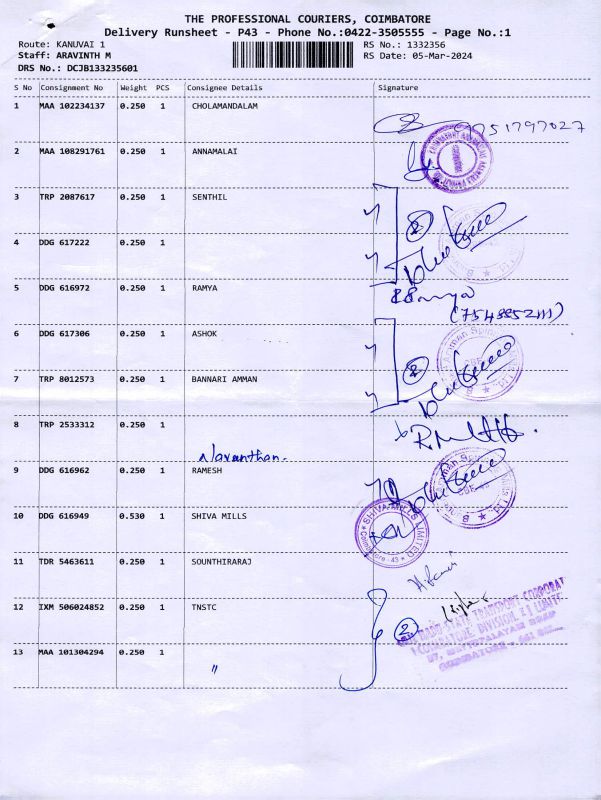 THE PROFESSIONAL COURIERS, COIMBATORE
Delivery Runsheet - P43 - Phone No.:0422-3505555 - Page No.:1
Route: KANUVAI 1 RS No.: 1332356
Staff: ARAVINTH M RS Date: 05-Mar-2024
DRS No.: DCJB133235601
S No Consignment No Weight PCS Consignee Details Signature
1 MAA 102234137 0.250 1 CHOLAMANDALAM
2 MAA 108291761 0.250 1 ANNAMALAI
3 TRP 2087617 0.250 1 SENTHIL
2
4 DDG 617222 0.250 1
5 DDG 616972 0.250 1 RAMYA
6 DDG 617306 0.250 1 ASHOK
2
7 TRP 8012573 0.250 1 BANNARI AMMAN
8 TRP 2533312 0.250 1
9 DDG 616962 0.250 1 RAMESH
10 DDG 616949 0.530 1 SHIVA MILLS
SHIVA MILLS LIMITED
11 TDR 5463611 0.250 1 SOUNTHIRARAJ
12 IXM 506024852 0.250 1 TNSTC
2
TRANSPORT CORPORAT
COIMBATORE DIVISION
13 MAA 101304294 0.250 1 "